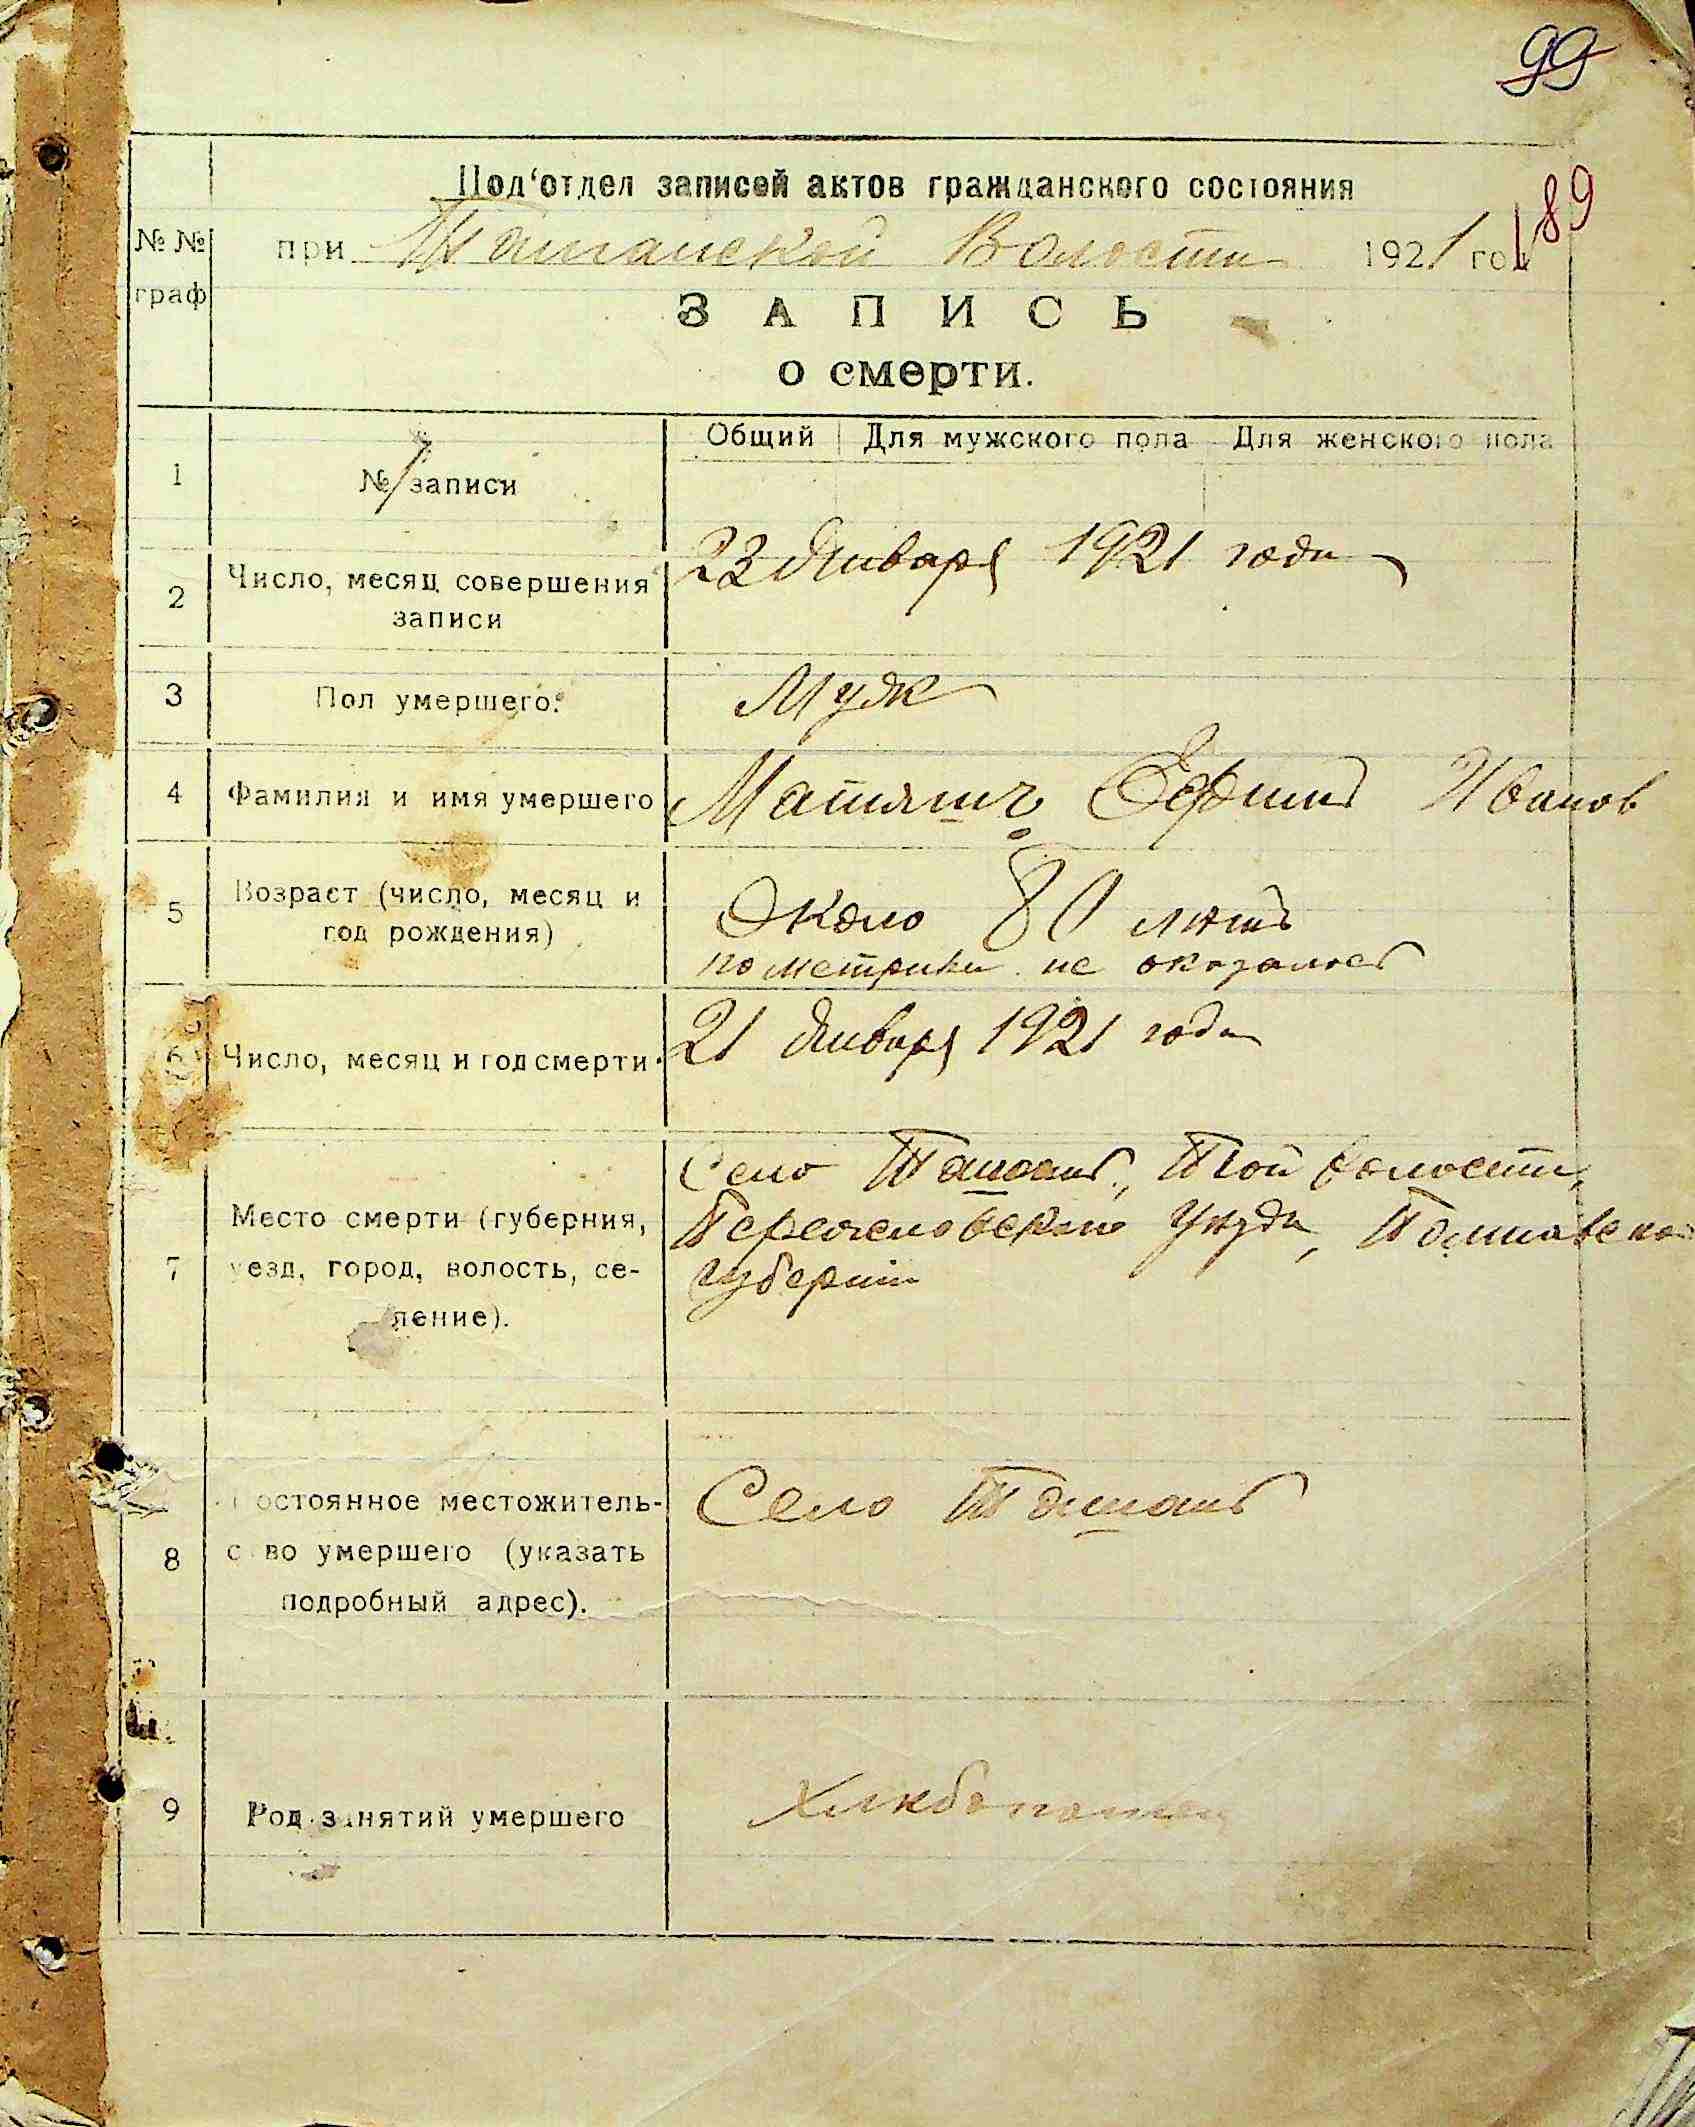 99
89
Под‘отдел записей актов гражданского состояния
№ № граф
при Ташанской Волости 1921 го
ЗАПИСЬ
о смерти.
Общий Для мужского пола Для женского пола
1 № 1 записи
2 Число, месяц совершения записи
23 Января 1921 года
3 Пол умершего.
Муж
4 Фамилия и имя умершего
Матяш Ефим Иванов
5 Возраст (число, месяц и год рождения)
Около 80 лѣтъ
по метрики не оказалось
6 Число, месяц и год смерти.
21 Января 1921 года
7 Место смерти (губерния, уезд, город, волость, селение).
Село Ташань, Той волости,
Переяславскаго Уезда, Полтавской
губернии
8 Постоянное местожительство умершего (указать подробный адрес).
Село Ташань
9 Род занятий умершего
Хлѣбопашец